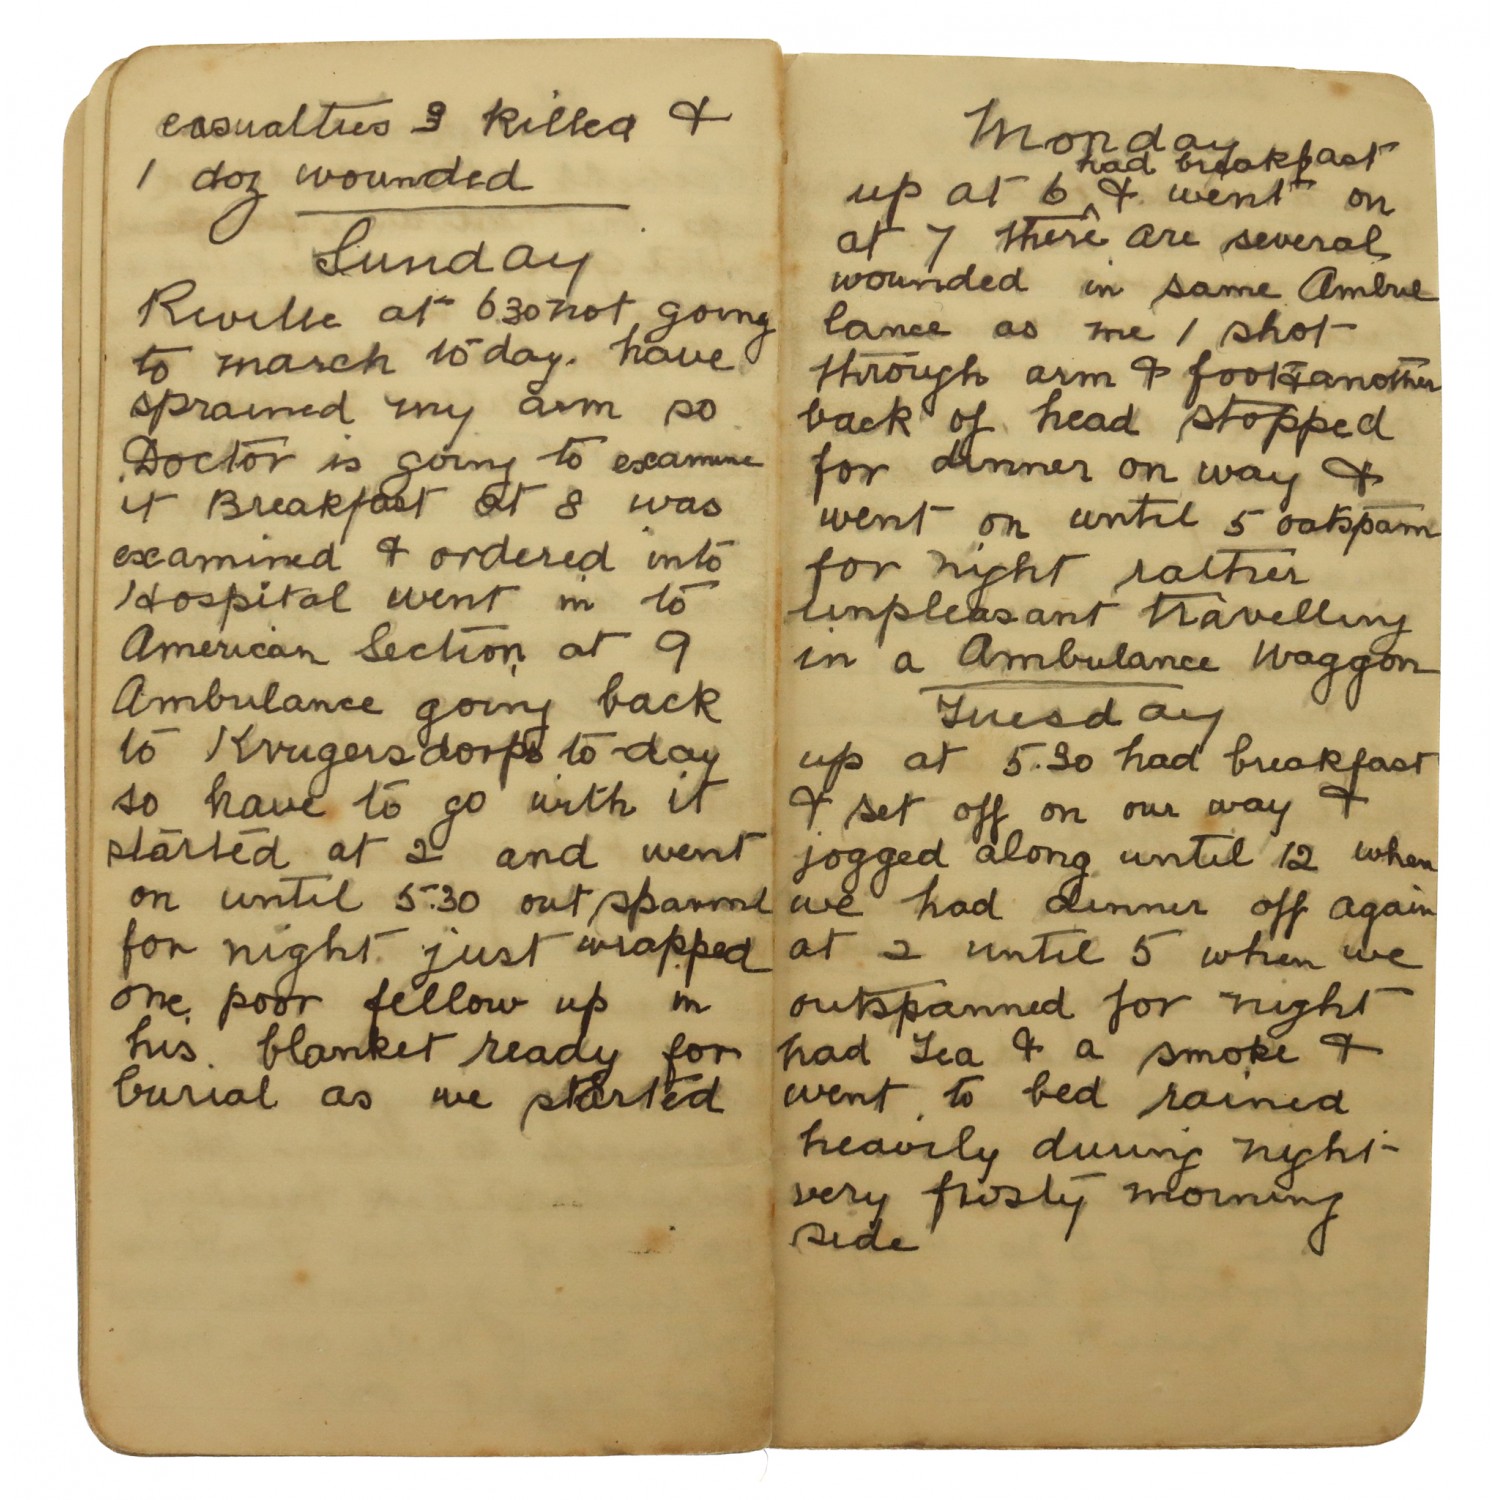 casualties 3 killed &
1 doz wounded
Sunday
Reville at 630 not going
to march to day. have
sprained my arm so
Doctor is going to examine
it Breakfast at 8 was
examined & ordered into
Hospital went in to
American Section at 9
Ambulance going back
to Krugersdorp to-day
so have to go with it
started at 2 and went
on until 5.30 out spanned
for night just wrapped
one poor fellow up in
his blanket ready for
burial as we started
Monday
had breakfast
up at 6 & went on
at 7 there are several
wounded in same Ambu
lance as me 1 shot
through arm & foot & another
back of head stopped
for dinner on way &
went on until 5 outspann
for night rather
unpleasant travelling
in a Ambulance Waggon
Tuesday
up at 5.30 had breakfast
& set off on our way &
jogged along until 12 when
we had dinner off again
at 2 until 5 when we
outspanned for night
had Tea & a smoke &
went to bed rained
heavily during night
very frosty morning
side